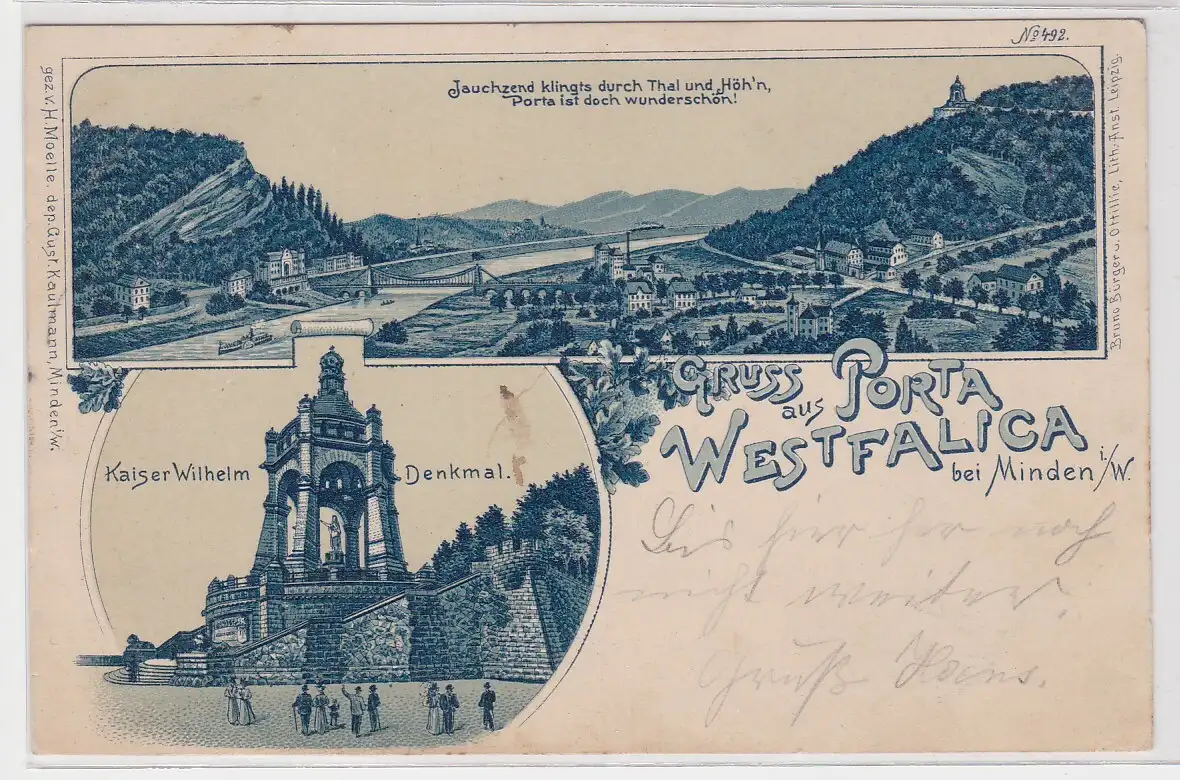 No 492.
Jauchzend klingts durch Thal und Höh'n,
Porta ist doch wunderschön!
gez. v. H. Moelle. dep. Gust. Kaufmann, Minden i/W.
Bruno Bürger u. Ottillie, Lith. Anst. Leipzig.
GRUSS
aus PORTA
WESTFALICA
bei Minden i/W.
Kaiser Wilhelm Denkmal.
Bis hier her noch
nicht weiter.
Gruß